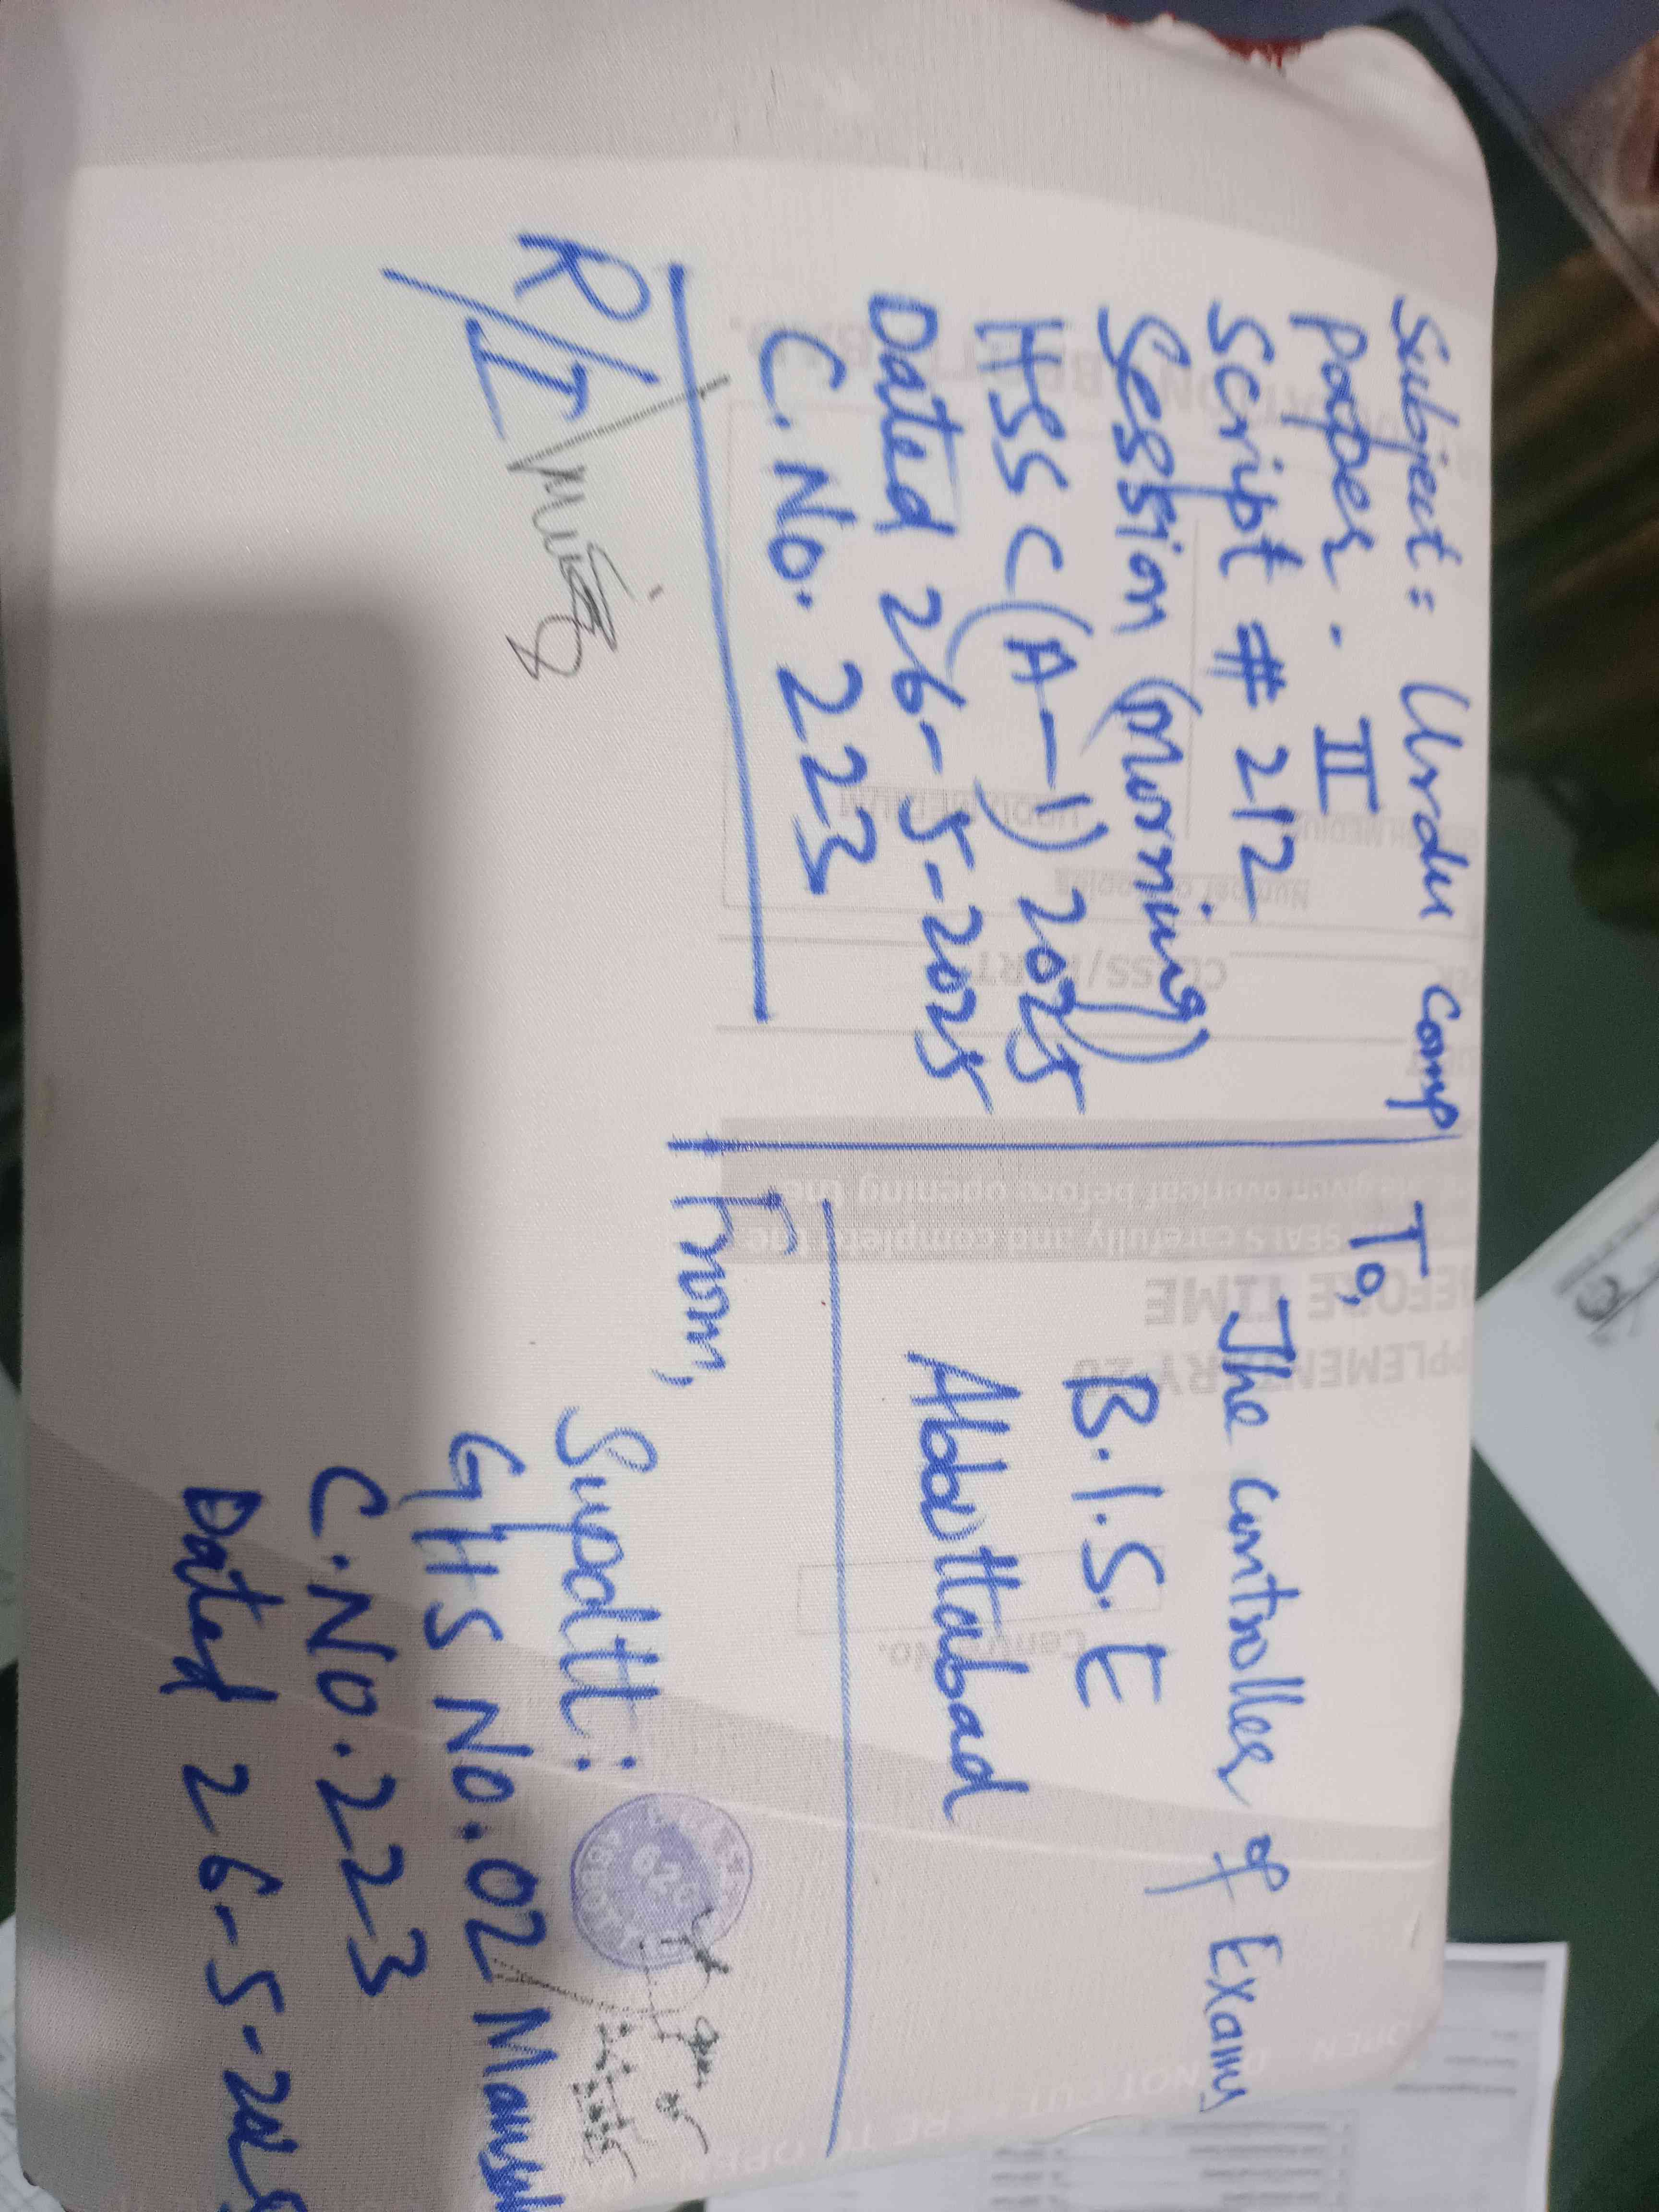 Subject: Urdu comp
paper. II
Script # 212
Session (Morning)
HSSC (A-I) 2025
Dated 26-5-2025
C. No. 223
R/I
To,
The controller of Exams
B.I.S.E
Abbottabad
From,
Supdtt:
GHS No.02
C.No.223
Dated 26-5-2025